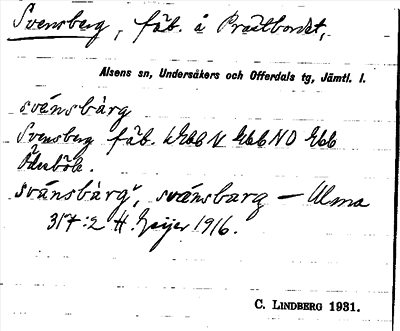 Svensberg, fäb. å Prästbordet,
Alsens sn, Undersåkers och Offerdals tg, Jämtl. l.
svä́nsbàrg
Svensberg fäb.
Ödesböle.
svä́nsbàrg, svä́nsbarg — Ulma
317:2 H. Geijer 1916.
C. LINDBERG 1931.